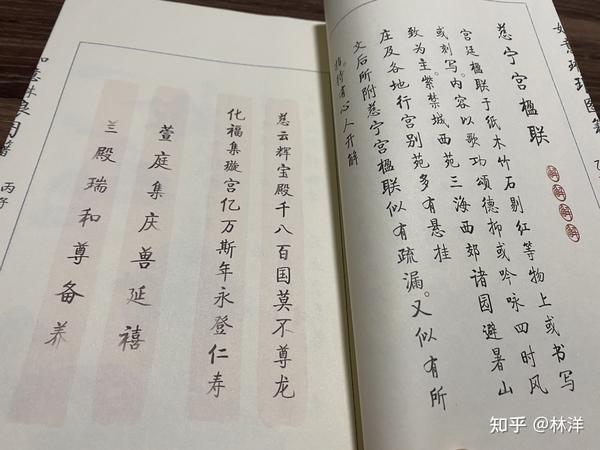 慈宁宫楹联
宫廷楹联于纸木竹石剔红等物上或书写
或刻写。内容以歌功颂德抑或吟咏四时风
致为主。紫禁城西苑三海西郊诸园避暑山
庄及各地行宫别苑多有悬挂
文后所附慈宁宫楹联似有疏漏。又似有所
指待有心人开解
慈云辉宝殿千八百国莫不尊龙
化福集璇宫亿万斯年永登仁寿
萱庭集庆兽延禧
兰殿瑞和尊备养
知乎 @林洋